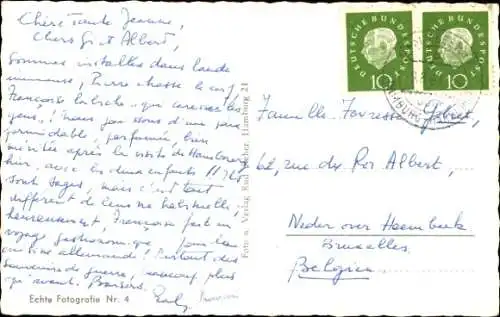 Chère Tante Jeanne,
Chers Gr. et Albert,
Sommes installés dans lande
Pierre chasse le cerf,
Françoise la biche, que caressez les
yeux! Nous jour d'une paix
formidable, parfumée, bien
méritée après la visite de Hambourg
hier, avec les deux enfants!! Ils
sont sages, mais c'est tout
différent de leur vie habituelle,
heureusement, Françoise fait un
voyage gastronomique, pour la
cuisine allemande! Partout des
souvenirs de guerre, beaucoup plus
qu'avant. Baisers.
Echte Fotografie Nr. 4
Foto u. Verlag Hamburg 21
DEUTSCHE BUNDESPOST
10
DEUTSCHE BUNDESPOST
10
Famille
62, rue du Roi Albert,
Neder over Heembeek
Bruxelles
Belgien